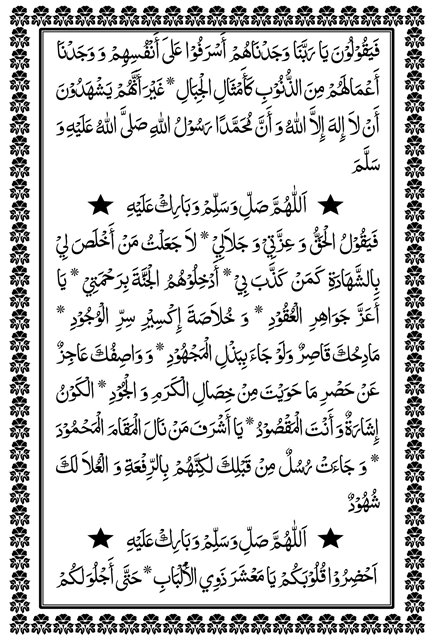 فَيَقُوْلُوْنَ يَا رَبَّنَا وَجَدْنَاهُمْ أَسْرَفُوْا عَلَى أَنْفُسِهِمْ وَ وَجَدْنَا
أَعْمَالَهُمْ مِنَ الذُّنُوْبِ كَأَمْثَالِ الْجِبَالِ * غَيْرَ أَنَّهُمْ يَشْهَدُوْنَ
أَنْ لَا إِلهَ إِلَّا اللهُ وَ أَنَّ مُحَمَّدًا رَسُوْلُ اللهِ صَلَّى اللهُ عَلَيْهِ وَ
سَلَّمَ
★ اَللّٰهُمَّ صَلِّ وَسَلِّمْ وَ بَارِكْ عَلَيْهِ ★
فَيَقُوْلُ الْحَقُّ وَ عِزَّتِيْ وَ جَلَالِيْ * لَا جَعَلْتُ مَنْ أَخْلَصَ لِيْ
بِالشَّهَادَةِ كَمَنْ كَذَّبَ بِيْ * أَدْخِلُوْهُمُ الْجَنَّةَ بِرَحْمَتِيْ * يَا
أَعَزَّ جَوَاهِرِ الْعُقُوْدِ * وَ خُلَاصَةَ إِكْسِيْرِ سِرِّ الْوُجُوْدِ *
مَادِحُكَ قَاصِرٌ وَلَوْ جَاءَ بِبَذْلِ الْمَجْهُوْدِ * وَ وَاصِفُكَ عَاجِزٌ
عَنْ حَصْرِ مَا حَوَيْتَ مِنْ خِصَالِ الْكَرَمِ وَ الْجُوْدِ * الْكَوْنُ
إِشَارَةٌ وَ أَنْتَ الْمَقْصُوْدُ * يَا أَشْرَفَ مَنْ نَالَ الْمَقَامَ الْمَحْمُوْدَ
* وَ جَاءَتْ رُسُلٌ مِنْ قَبْلِكَ لكِنَّهُمْ بِالرِّفْعَةِ وَ الْعُلَا لَكَ
شُهُوْدٌ
★ اَللّٰهُمَّ صَلِّ وَسَلِّمْ وَ بَارِكْ عَلَيْهِ ★
اَحْضِرُوْا قُلُوْبَكُمْ يَا مَعْشَرَ ذَوِي الْأَلْبَابِ * حَتَّى أَجْلُوَ لَكُمْ